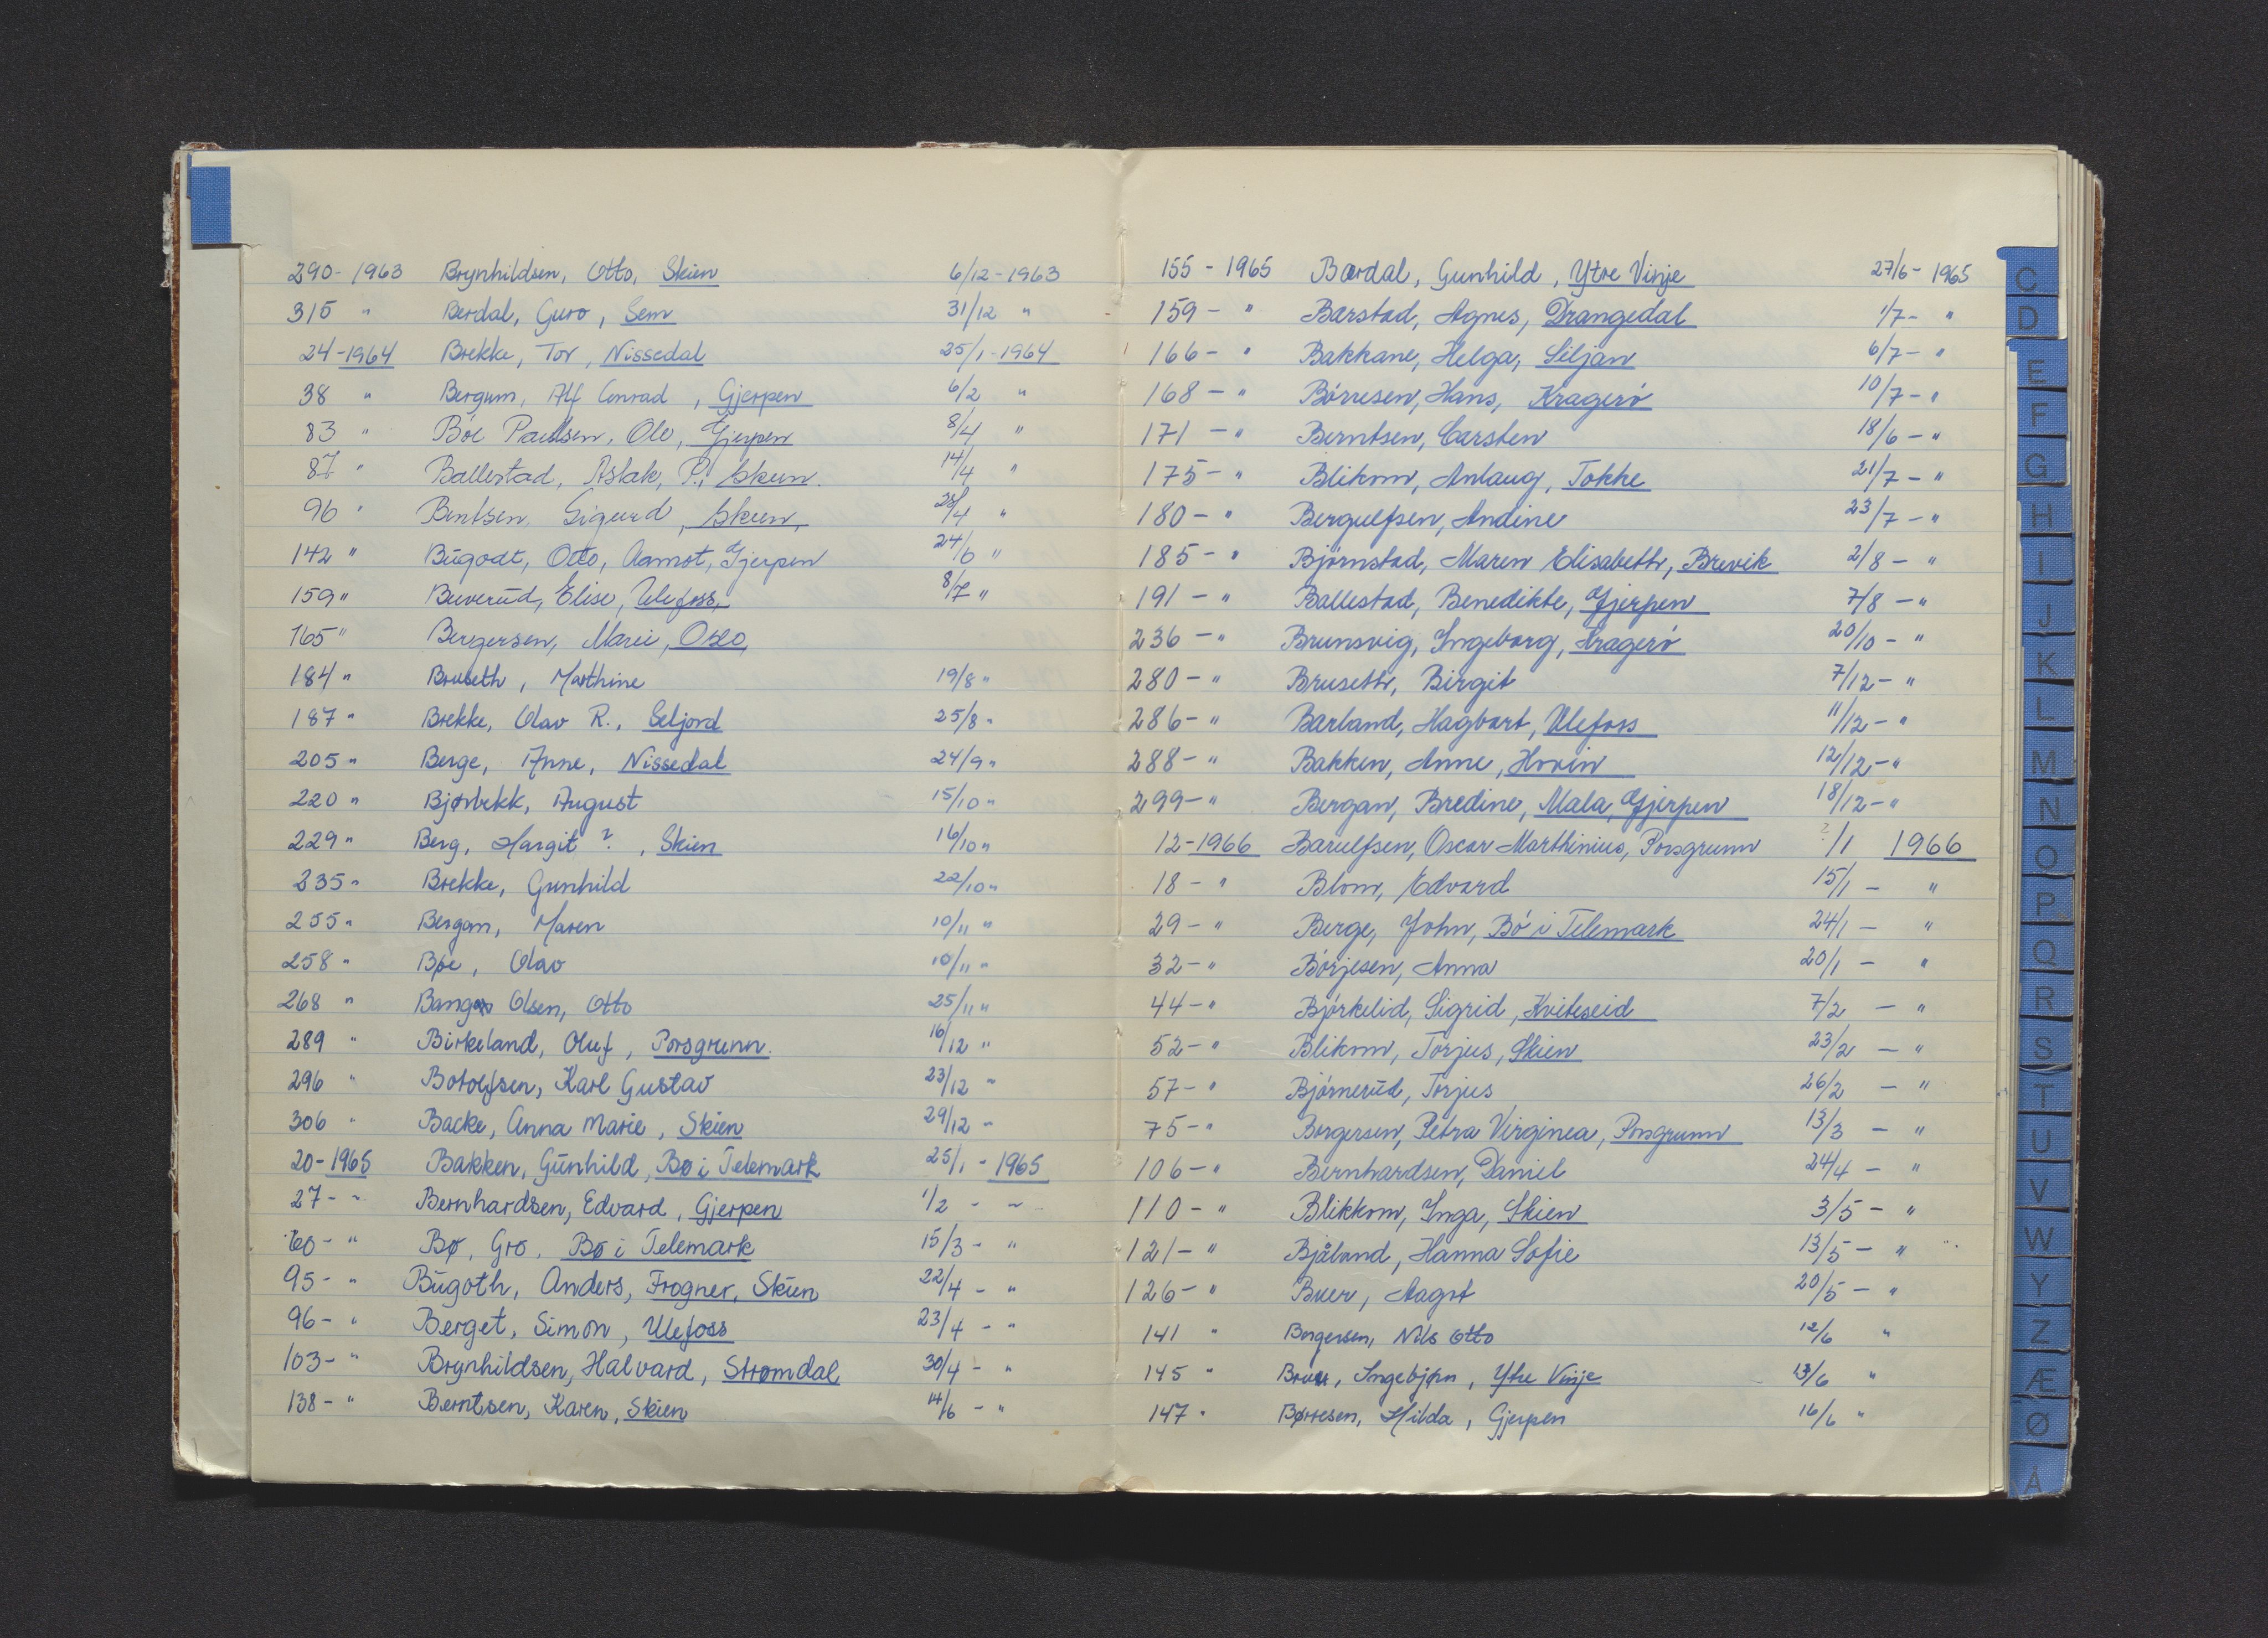 290 - 1963 Brynhildsen, Otto, Skien 6/12 - 1963
315 " Berdal, Guro, Sem 31/12 "
24 - 1964 Brekke, Tor, Nissedal 25/1 - 1964
38 " Bergum, Alf Conrad, Gjerpen 6/2 "
83 " Böe Paulsen, Ole, Gjerpen 8/4 "
87 " Ballestad, Aslak, P., Skien. 14/4 "
96 " Bentsen, Sigurd, Skien, 28/4 "
142 " Bugodt, Otto, Aamot, Gjerpen 24/6 "
159 " Buverud, Elise, Ulefoss, 8/7 "
165 " Bergersen, Marie, Oslo,
184 " Bruseth, Marthine 19/8 "
187 " Brekke, Olav R., Seljord 25/8 "
205 " Berge, Anne, Nissedal 24/9 "
220 " Bjørbekk, August 15/10 "
229 " Berg, Hargit ?, Skien 16/10 "
235 " Brekke, Gunhild 22/10 "
255 " Bergan, Maren 10/11 "
258 " Bøe, Olav 10/11 "
268 " Bang Olsen, Otto 25/11 "
289 " Birkeland, Oluf, Porsgrunn. 16/12 "
296 " Botolfsen, Karl Gustav 23/12 "
306 " Backe, Anna Marie, Skien 29/12 "
20 - 1965 Bakken, Gunhild, Bø i Telemark 25/1 - 1965
27 - " Bernhardsen, Edvard, Gjerpen 1/2 - "
60 - " Bø, Gro, Bø i Telemark 15/3 - "
95 - " Bugoth, Anders, Frogner, Skien 22/4 - "
96 - " Berget, Simon, Ulefoss 23/4 - "
103 - " Brynhildsen, Halvard, Strømdal 30/4 - "
138 - " Berntsen, Karen, Skien 14/6 - "
155 - 1965 Bærdal, Gunhild, Ytre Vinje 27/6 - 1965
159 - " Barstad, Agnes, Drangedal 1/7 - "
166 - " Bakkane, Helga, Siljan 6/7 - "
168 - " Börresen, Hans, Kragerö 10/7 - "
171 - " Berntsen, Carsten 18/6 - "
175 - " Blikom, Anlaug, Tokke 21/7 - "
180 - " Bergulfsen, Andine 23/7 - "
185 - " Björnstad, Maren Elisabeth, Brevik 2/8 - "
191 - " Ballestad, Benedikte, Gjerpen 7/8 - "
236 - " Brunsvig, Ingeborg, Kragerö 20/10 - "
280 - " Bruseth, Birgit 7/12 - "
286 - " Barland, Hagbart, Ulefoss 11/12 - "
288 - " Bakken, Anne, Hovin 12/12 - "
299 - " Bergan, Bredine, Mæla, Gjerpen 18/12 - "
12 - 1966 Barulfsen, Oscar Marthinius, Porsgrunn ?/1 1966
18 - " Blom, Edvard 15/1 - "
29 - " Berge, John, Bö i Telemark 24/1 - "
32 - " Börjesen, Anna 20/1 - "
44 - " Björkelid, Sigrid, Kviteseid 7/2 - "
52 - " Blikom, Torjus, Skien 23/2 - "
57 - " Björnerud, Torjus 26/2 - "
75 - " Borgersen, Petra Virginea, Porsgrunn 13/3 - "
106 - " Bernhardsen, Daniel 24/4 - "
110 - " Blikkom, Inga, Skien 3/5 - "
121 - " Bjåland, Hanna Sofie 13/5 - "
126 - " Buer, Aagot 20/5 - "
141 " Bergersen, Nils Otto 12/6 "
145 " Ingebjørn, Ytre Vinje 13/6 "
147 " Børresen, Hilda, Gjerpen 16/6 "
C
D
E
F
G
H
I
J
K
L
M
N
O
P
Q
R
S
T
U
V
W
Y
Z
Æ
Ø
Å